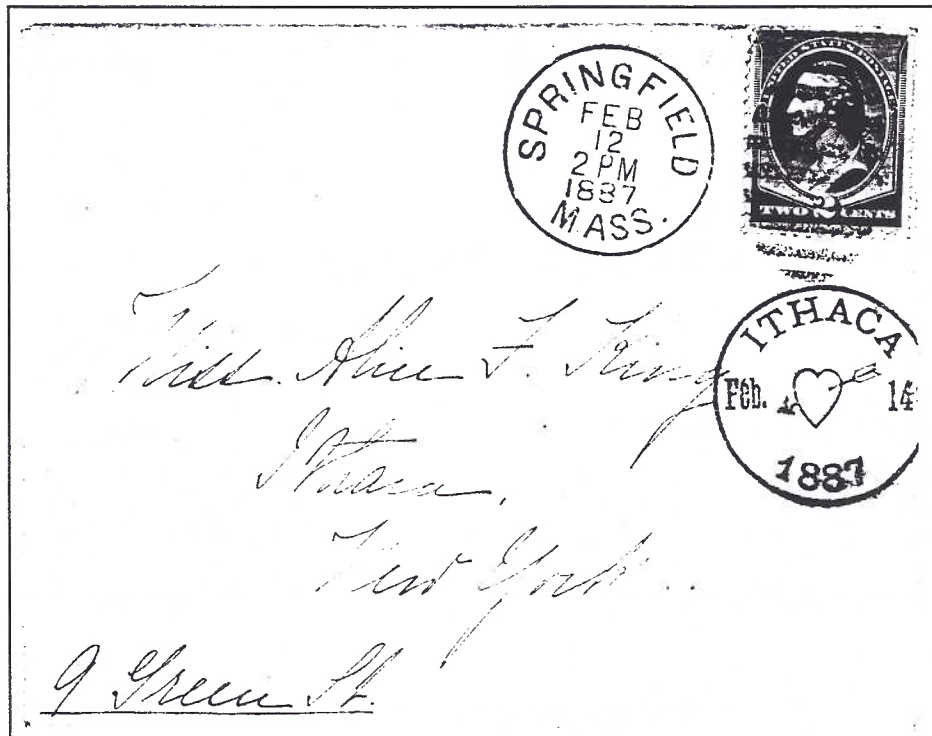 SPRINGFIELD
FEB
12
2 PM
1887
MASS.
UNITED STATES POSTAGE
TWO 2 CENTS
ITHACA
Feb. 14
1887
Miss. Alice F. King
Ithaca,
New York.
9 Green St.